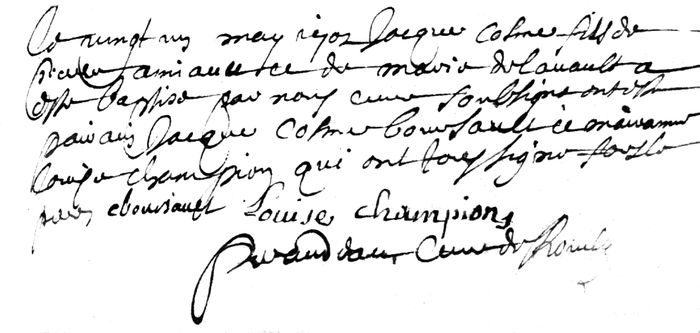 Le vingt un may 1702 Jacque Cosme fils de
pierre amiault et de marie delavault a
este baptise par nous cure soubsigne ont este
parain Jacque Cosme boursault et maraine
Louise champion qui ont tous signe fors le
pere cboursault Louise champions
cure de